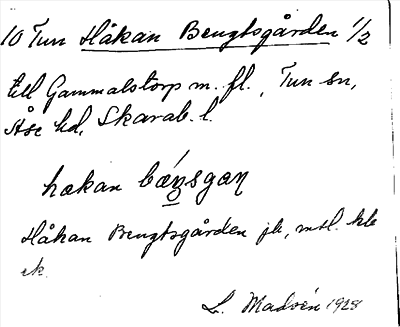 10 Tun Håkan Bengtsgården 1/2
till Gammalstorp m. fl., Tun sn,
Åse hd, Skarab. l.
hakan bæŋsgaɳ
Håkan Bengtsgården jb, mtl. kbl
ek.
L. Madsén 1928